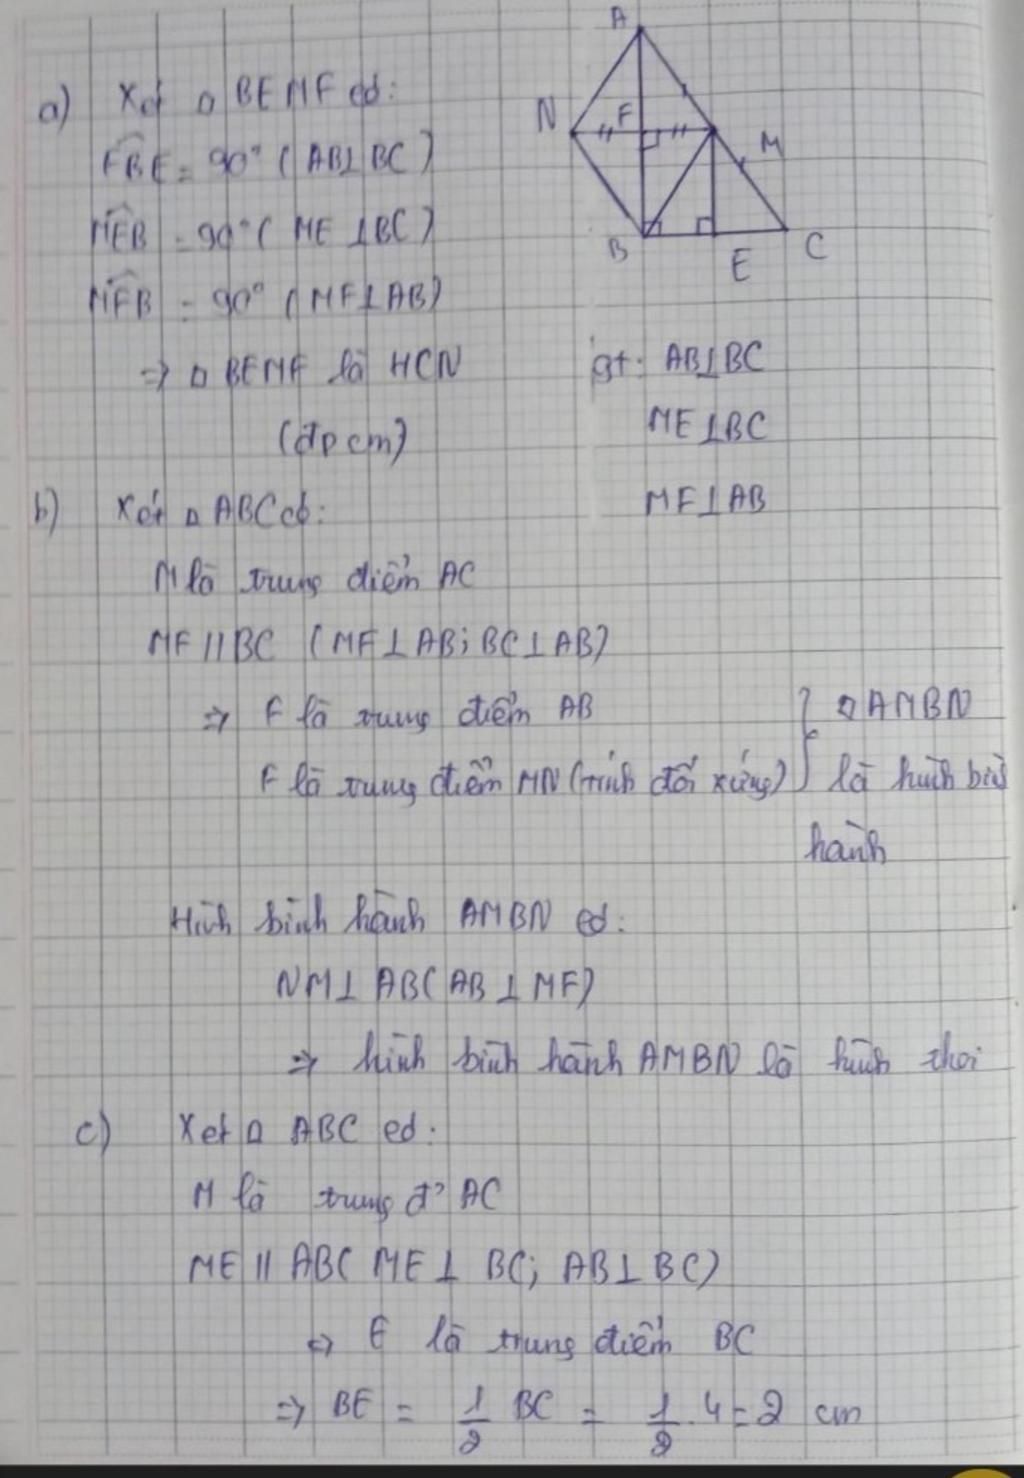 A
a) Xét □ BEMF có:
N F M
FBE = 90° (AB⊥BC)
MEB = 90° (ME⊥BC)
B E C
MFB = 90° (MF⊥AB)
⇒ □ BEMF là HCN
gt: AB⊥BC
(đpcm)
ME⊥BC
b) Xét △ ABC có:
MF⊥AB
M là trung điểm AC
MF // BC (MF⊥AB; BC⊥AB)
⇒ F là trung điểm AB } □ AMBN
F là trung điểm MN (tính đối xứng) là hình bình
hành
Hình bình hành AMBN có:
NM⊥ AB (AB ⊥ MF)
⇒ hình bình hành AMBN là hình thoi
c) Xét △ ABC có:
M là trung đ' AC
ME // AB ( ME ⊥ BC; AB⊥BC)
⇒ E là trung điểm BC
⇒ BE = 1/2 BC = 1/2 . 4 = 2 cm